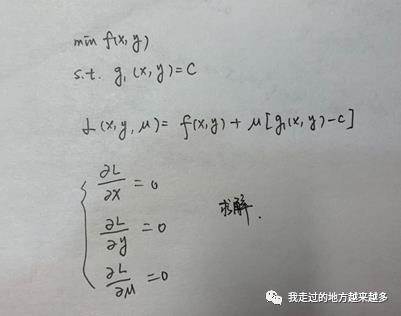 min f(x, y)
s.t. g₁(x, y) = C
L(x, y, μ) = f(x, y) + μ[g₁(x, y) - c]
∂L/∂x = 0
∂L/∂y = 0
求解.
∂L/∂μ = 0
我走过的地方越来越多